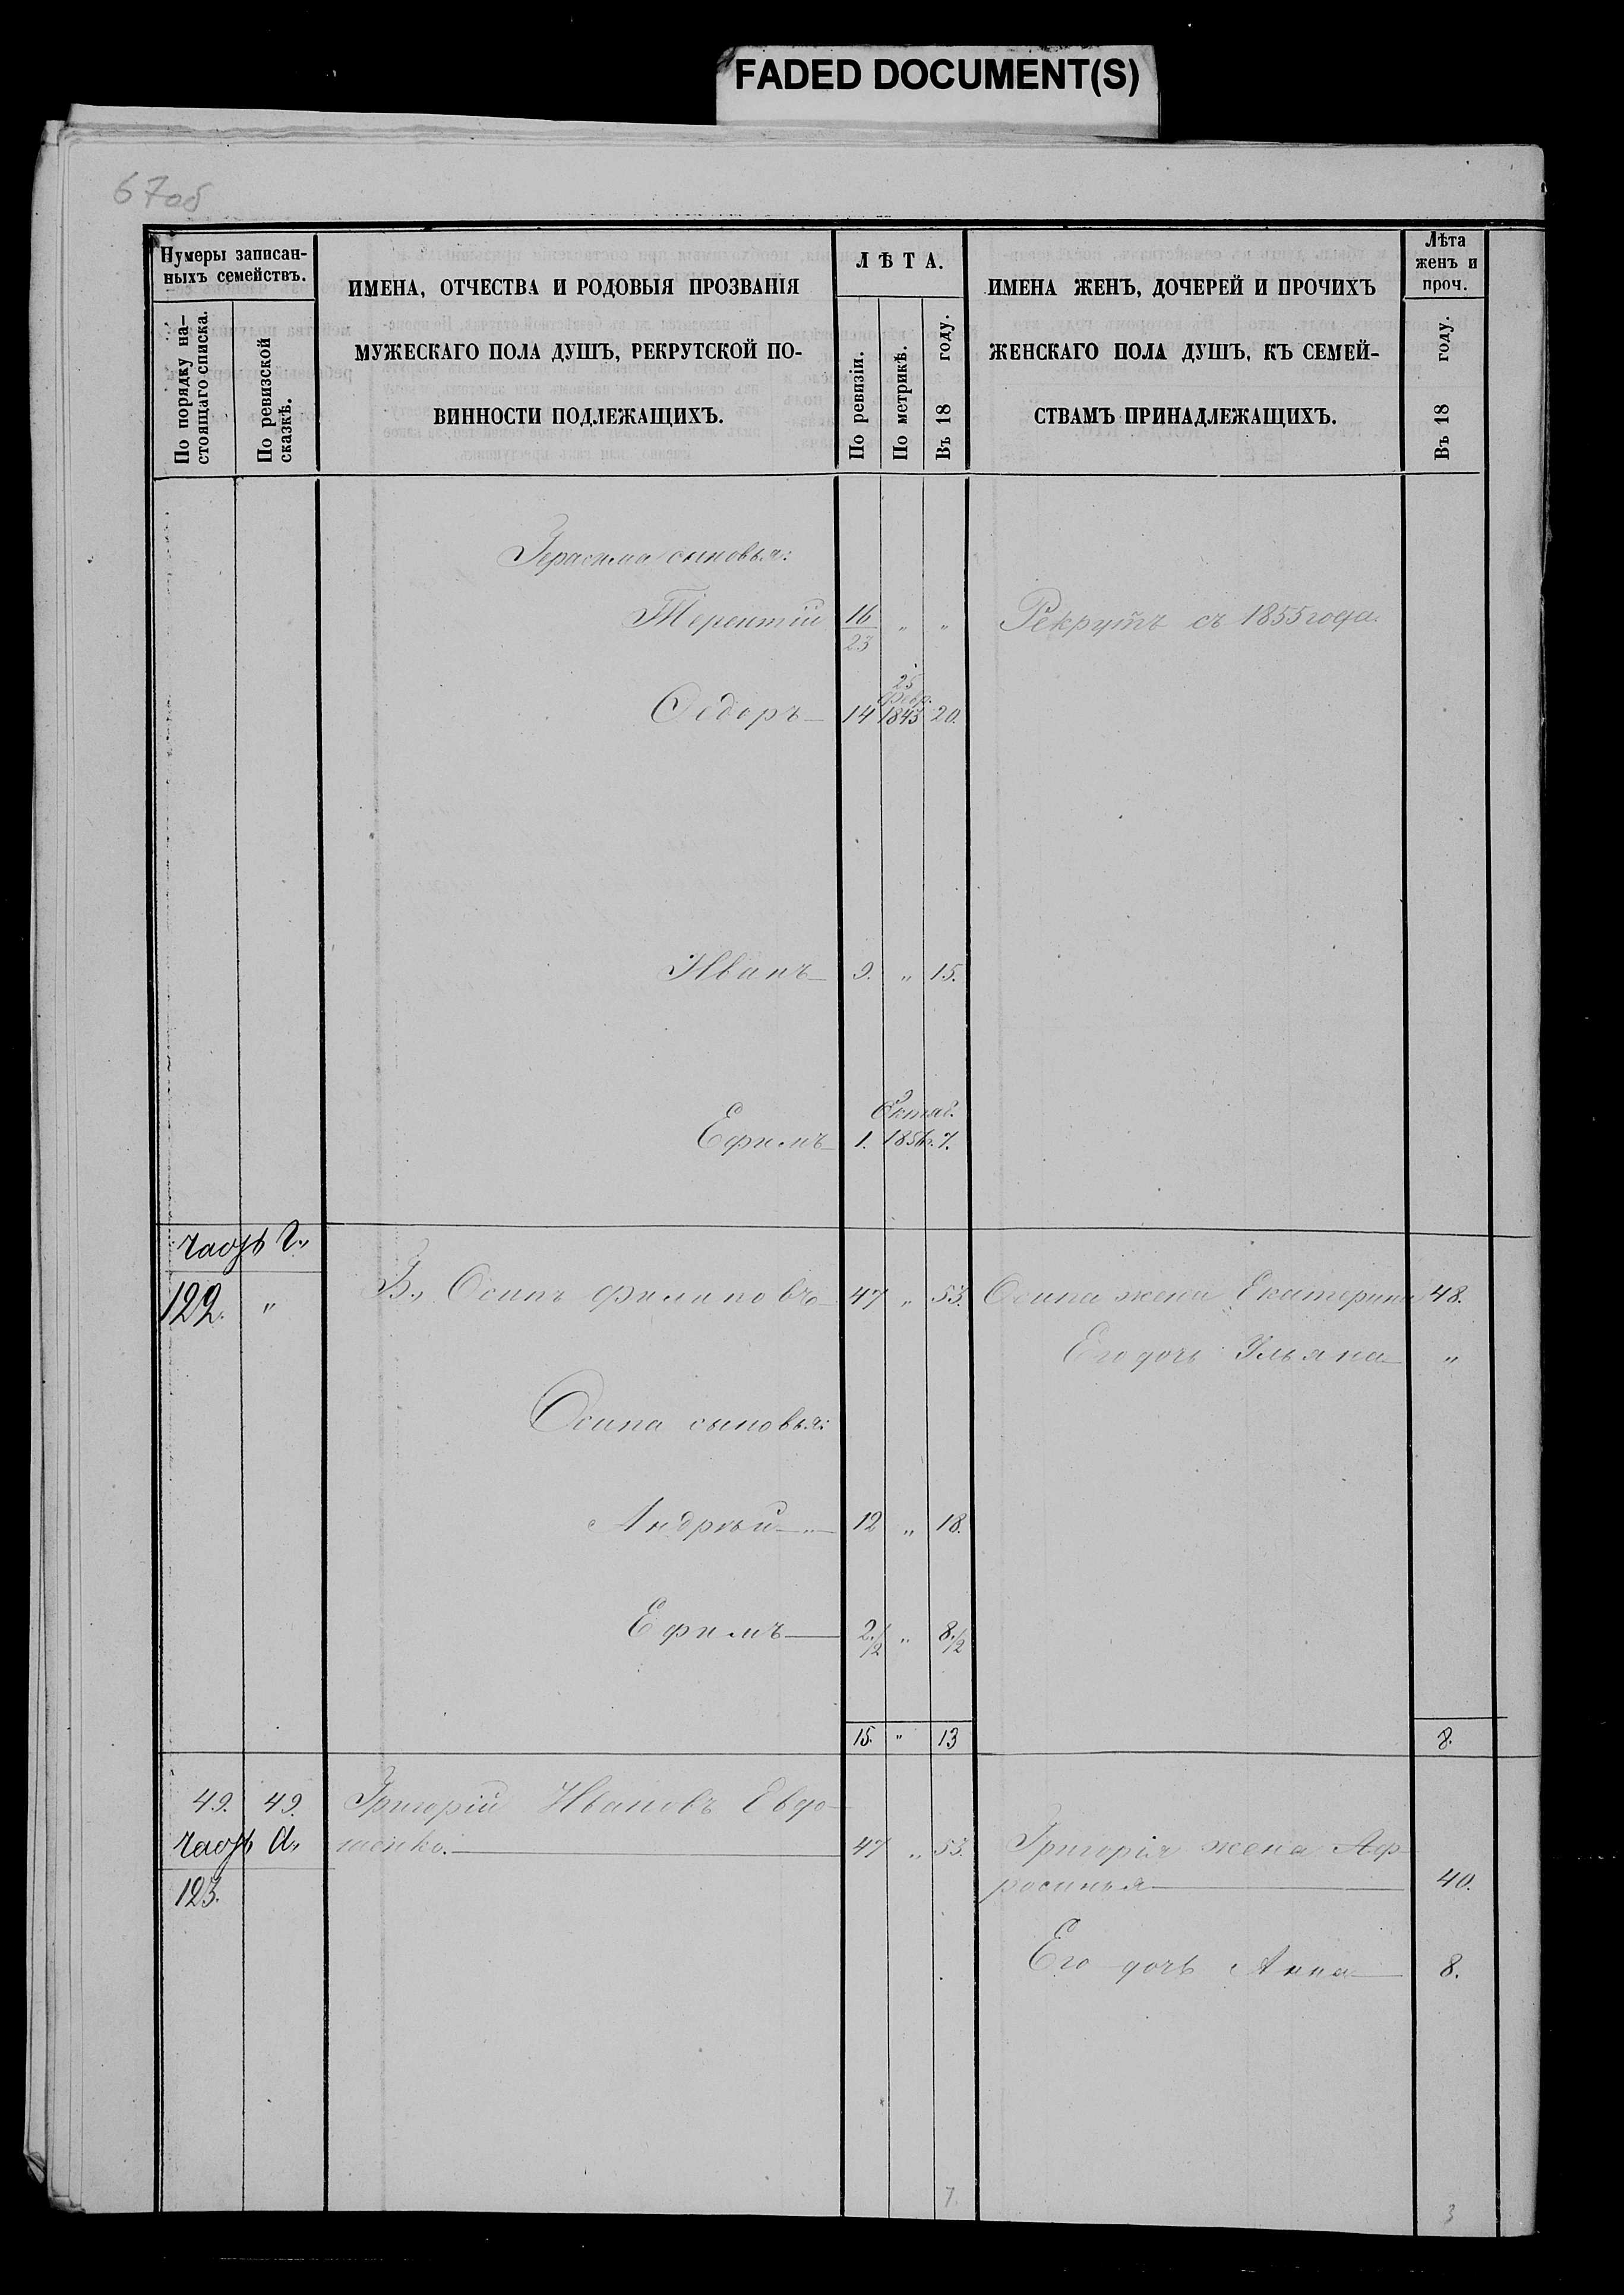 FADED DOCUMENT(S)
67об
Нумеры записан-
ныхъ семействъ.
По порядку на-
стоящаго списка.
По ревизской
сказкѣ.
ИМЕНА, ОТЧЕСТВА И РОДОВЫЯ ПРОЗВАНІЯ
МУЖЕСКАГО ПОЛА ДУШЪ, РЕКРУТСКОЙ ПО-
ВИННОСТИ ПОДЛЕЖАЩИХЪ.
ЛѢТА.
По ревизіи.
По метрикѣ.
Въ 18 году.
ИМЕНА ЖЕНЪ, ДОЧЕРЕЙ И ПРОЧИХЪ
ЖЕНСКАГО ПОЛА ДУШЪ, КЪ СЕМЕЙ-
СТВАМЪ ПРИНАДЛЕЖАЩИХЪ.
Лѣта
женъ и
проч.
Въ 18 году.
Герасима сыновья:
Терентій 16 " " Рекрутъ съ 1855 года.
23
25
Февр.
Ѳедоръ 14 1843 20.
Иванъ 9. " 15.
Октяб.
Ефимъ 1. 1856. 7.
122. " В., Осипъ Филиповъ 47 " 53. Осипа жена Екатерина 48.
Его дочь Ульяна "
Осипа сыновья:
Андрѣй " 12 " 18.
Ефимъ 2 1/2 " 8 1/2
15. " 13 8.
49. 49. Григорій Ивановъ Евдо-
часть А., менко. 47 " 53. Григорія жена Аф-
123. росинья 40.
Его дочь Анна 8.
7. 3